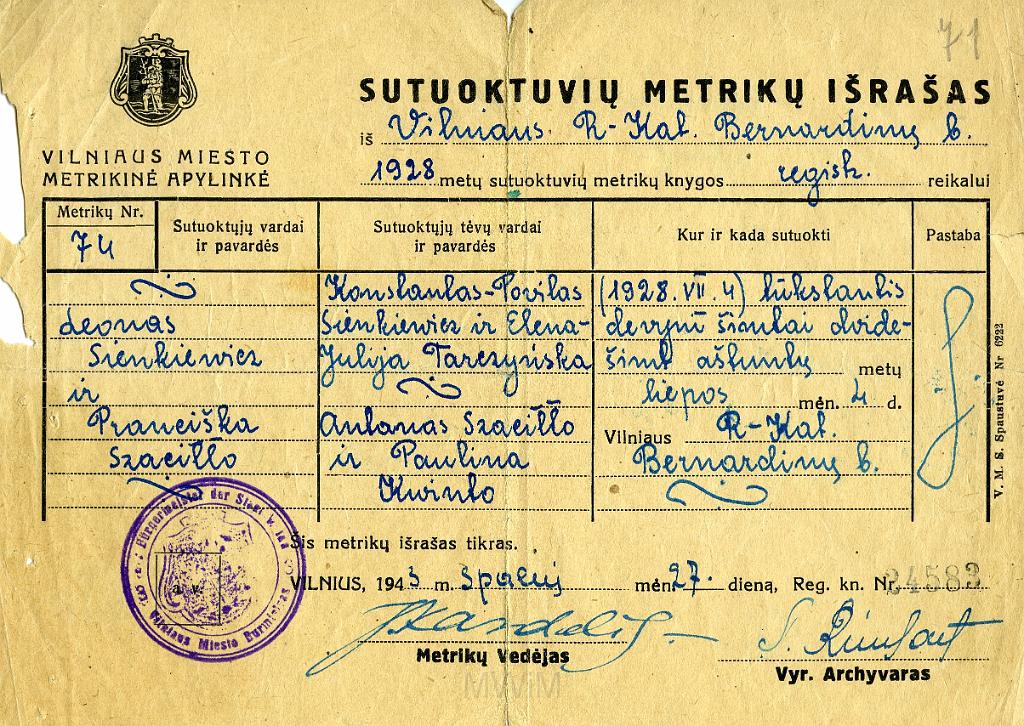 71
SUTUOKTUVIŲ METRIKŲ IŠRAŠAS
iš Vilniaus R-Kat. Bernardinų b.
VILNIAUS MIESTO
METRIKINĖ APYLINKĖ
1928 metų sutuoktuvių metrikų knygos regist. reikalui
Metrikų Nr.
74
Sutuoktųjų vardai
ir pavardės
Sutuoktųjų tėvų vardai
ir pavardės
Kur ir kada sutuokti
Pastaba
Leonas
Sienkiewicz
ir
Pranciška
Szaciłło
Konstantas-Povilas
Sienkiewicz ir Elena-
Julija Tarczyńska
Antanas Szaciłło
ir Paulina
Kwinto
(1928.VII.4) tūkstantis
devyni šimtai dvide-
šimt aštuntų metų
liepos mėn. 4 d.
Vilniaus R-Kat.
Bernardinų b.
V. M. S. Spaustuvė Nr 6222
Šis metrikų išrašas tikras.
VILNIUS, 1943 m. spalių mėn. 27. dieną, Reg. kn. Nr. 24583
Bürgermeister der Stadt
Vilniaus Miesto Burmistras
Metrikų Vedėjas
Vyr. Archyvaras
MWiM